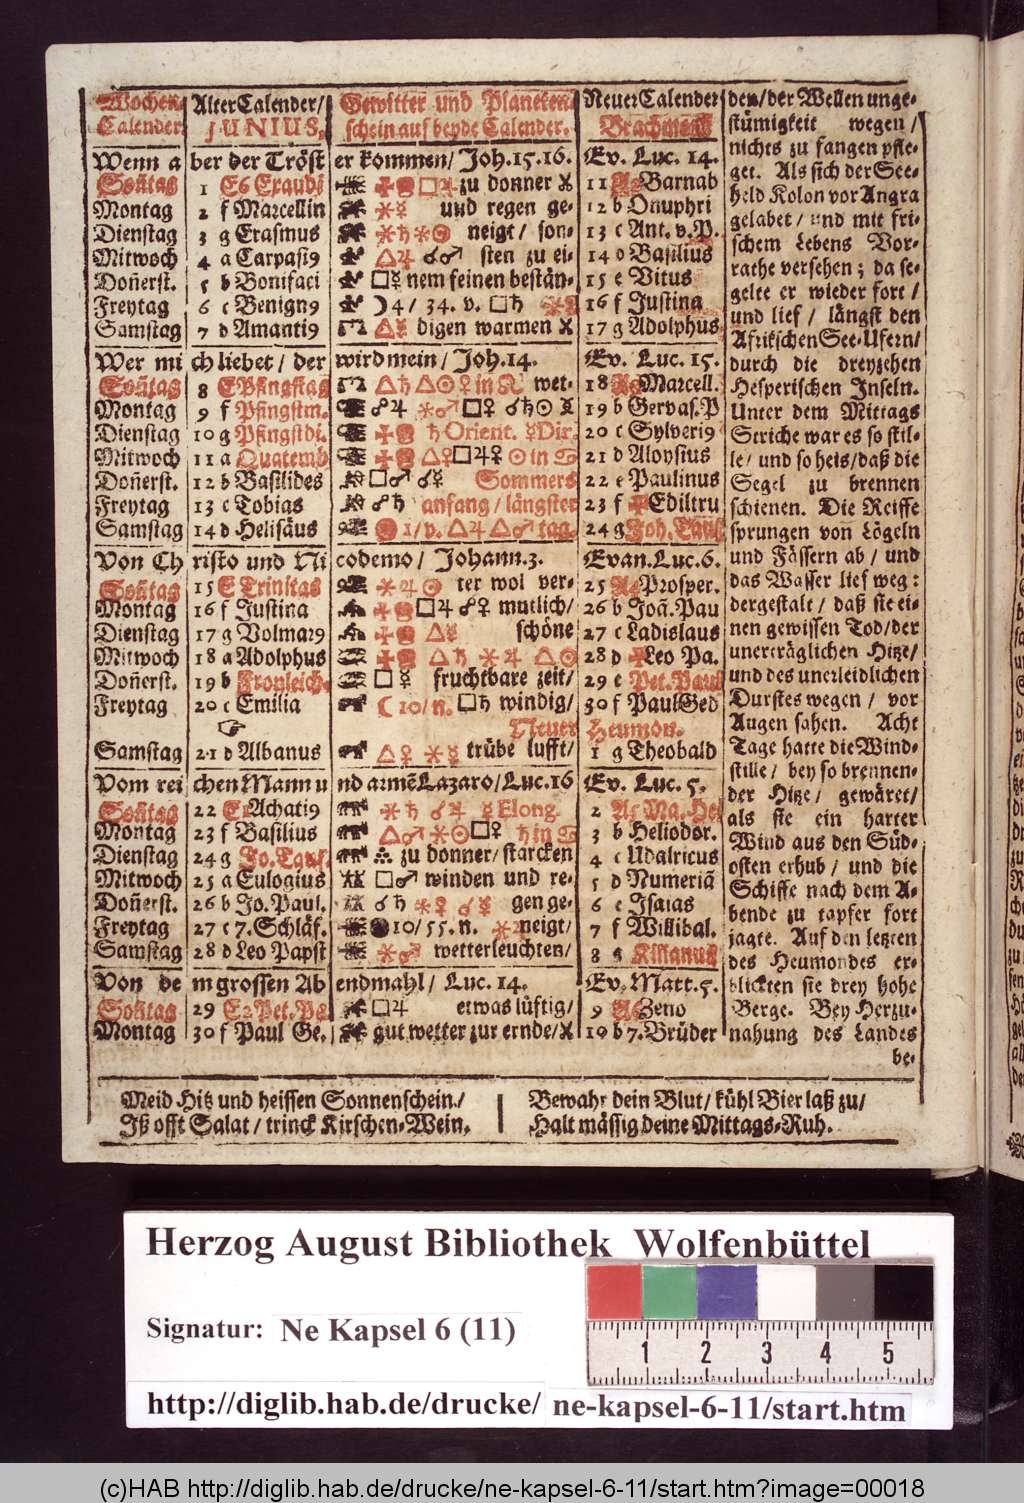 Wochen- Alter Calender/ Gewitter und Planeten- Neuer Calender
Calender. JUNIUS. schein auf beyde Calender. Brachmon
Wenn aber der Tröster kommen/ Joh. 15. 16. Ev. Luc. 14.
Soñtag 1 E6 Exaudi zu donner 11 Barnab
Montag 2 f Marcellin und regen ge- 12 b Onuphri
Dienstag 3 g Erasmus neigt/ son- 13 c Ant. v. P.
Mitwoch 4 a Carpasi9 ☌♂ sten zu ei- 14 Basilius
Doñerst. 5 b Bonifaci □☿ nem feinen bestän- 15 e Vitus
Freytag 6 c Benign9 4/ 34. v. □♄ 16 f Justina
Samstag 7 d Amanti9 △☿ digen warmen 17 g Adolphus
Wer mich liebet/ der wird mein/ Joh. 14. Ev. Luc. 15.
Soñtag 8 E Pfingstag △♄ △☉♀ in ♌ wet- 18 Marcell.
Montag 9 f Pfingstm. ☍♃ ⚹♂ □♀ ☌♄☉ 19 b Gervas. P
Dienstag 10 g Pfingstdi. ♄ Orient. ☿ Dir. 20 c Sylveri9
Mitwoch 11 a Quatemb △♀ □♃♀ ☉ in ♋ 21 d Aloysius
Doñerst. 12 b Basilides □♂ ☌☿ Sommers 22 e Paulinus
Freytag 13 c Tobias ☍♄ anfang/ längster 23 f Ediltru
Samstag 14 d Helisäus 1/ v. △♃ △♂ tag. 24 g Joh. Tauf
Von Christo und Nicodemo/ Johann. 3. Evan. Luc. 6.
Soñtag 15 E Trinitas ⚹♃☉ ter wol ver- 25 Prosper.
Montag 16 f Justina □♃ ☍♀ mutlich/ 26 b Joã. Pau
Dienstag 17 g Volmar9 △☿ schöne 27 c Ladislaus
Mitwoch 18 a Adolphus △♄ ⚹♃ △☉ 28 d Leo Pa.
Doñerst. 19 b Fronleich. □☿ fruchtbare zeit/ 29 e Pet. Paul
Freytag 20 c Emilia ☾ 10/ n. □♄ windig/ 30 f Paul Ged
☞ Neuer Heumon.
Samstag 21 d Albanus △♀ ⚹☿ trübe lufft/ 1 g Theobald
Vom reichen Mann und armẽ Lazaro/ Luc. 16 Ev. Luc. 5.
Soñtag 22 Achati9 ⚹♄ ☌♃ ☿ Elong. 2 Ma. Hei
Montag 23 f Basilius △♂ ⚹☉ □♀ ♄ in ♋ 3 b Heliodor.
Dienstag 24 g Jo. Tauf. zu donner/ starcken 4 c Udalricus
Mitwoch 25 a Eulogius □♂ winden und re- 5 d Numeriã
Doñerst. 26 b Jo. Paul. ☌♄ ⚹♀ ☌☿ gen ge- 6 e Isaias
Freytag 27 c 7. Schläf. 10/ 55. n. neigt/ 7 f Willibal.
Samstag 28 d Leo Papst ⚹♂ wetterleuchten/ 8 g Kilianus
Von dem grossen Abendmahl/ Luc. 14. Ev. Matt. 5.
Soñtag 29 E2 Pet. Pa □♃ etwas lüftig/ 9 Zeno
Montag 30 f Paul Ge. gut wetter zur ernde/ 10 b 7. Brüder
den/ der Wellen unge-
stümigkeit wegen/
nichts zu fangen pfle-
get. Als sich der See-
held Kolon vor Angra
gelabet/ und mit fri-
schem Lebens Vor-
rathe versehen; da se-
gelte er wieder fort/
und lief/ längst den
Afrikschen See-Ufern/
durch die dreyzehen
Hesperischen Inseln.
Unter dem Mittags
Striche war es so stil-
le/ und so heis/ daß die
Segel zu brennen
schienen. Die Reiffe
sprungen von Lögeln
und Fässern ab/ und
das Wasser lief weg:
dergestalt/ daß sie ei-
nen gewissen Tod/ der
unerträglichen Hitze/
und des unerleidlichen
Durstes wegen/ vor
Augen sahen. Acht
Tage hatte die Wind-
stille/ bey so brennen-
der Hitze/ gewäret/
als sie ein harter
Wind aus den Süd-
osten erhub/ und die
Schiffe nach dem A-
bende zu tapfer fort
jagte. Auf den letzten
des Heumondes er-
blickten sie drey hohe
Berge. Bey Herzu-
nahung des Landes
be-
Meid Hitz und heissen Sonnenschein/
Iß offt Salat/ trinck Kirschen-Wein,
Bewahr dein Blut/ kühl Bier laß zu/
Halt mässig deine Mittags-Ruh.
Herzog August Bibliothek Wolfenbüttel
Signatur: Ne Kapsel 6 (11)
1 2 3 4 5
http://diglib.hab.de/drucke/ ne-kapsel-6-11/start.htm
(c)HAB http://diglib.hab.de/drucke/ne-kapsel-6-11/start.htm?image=00018